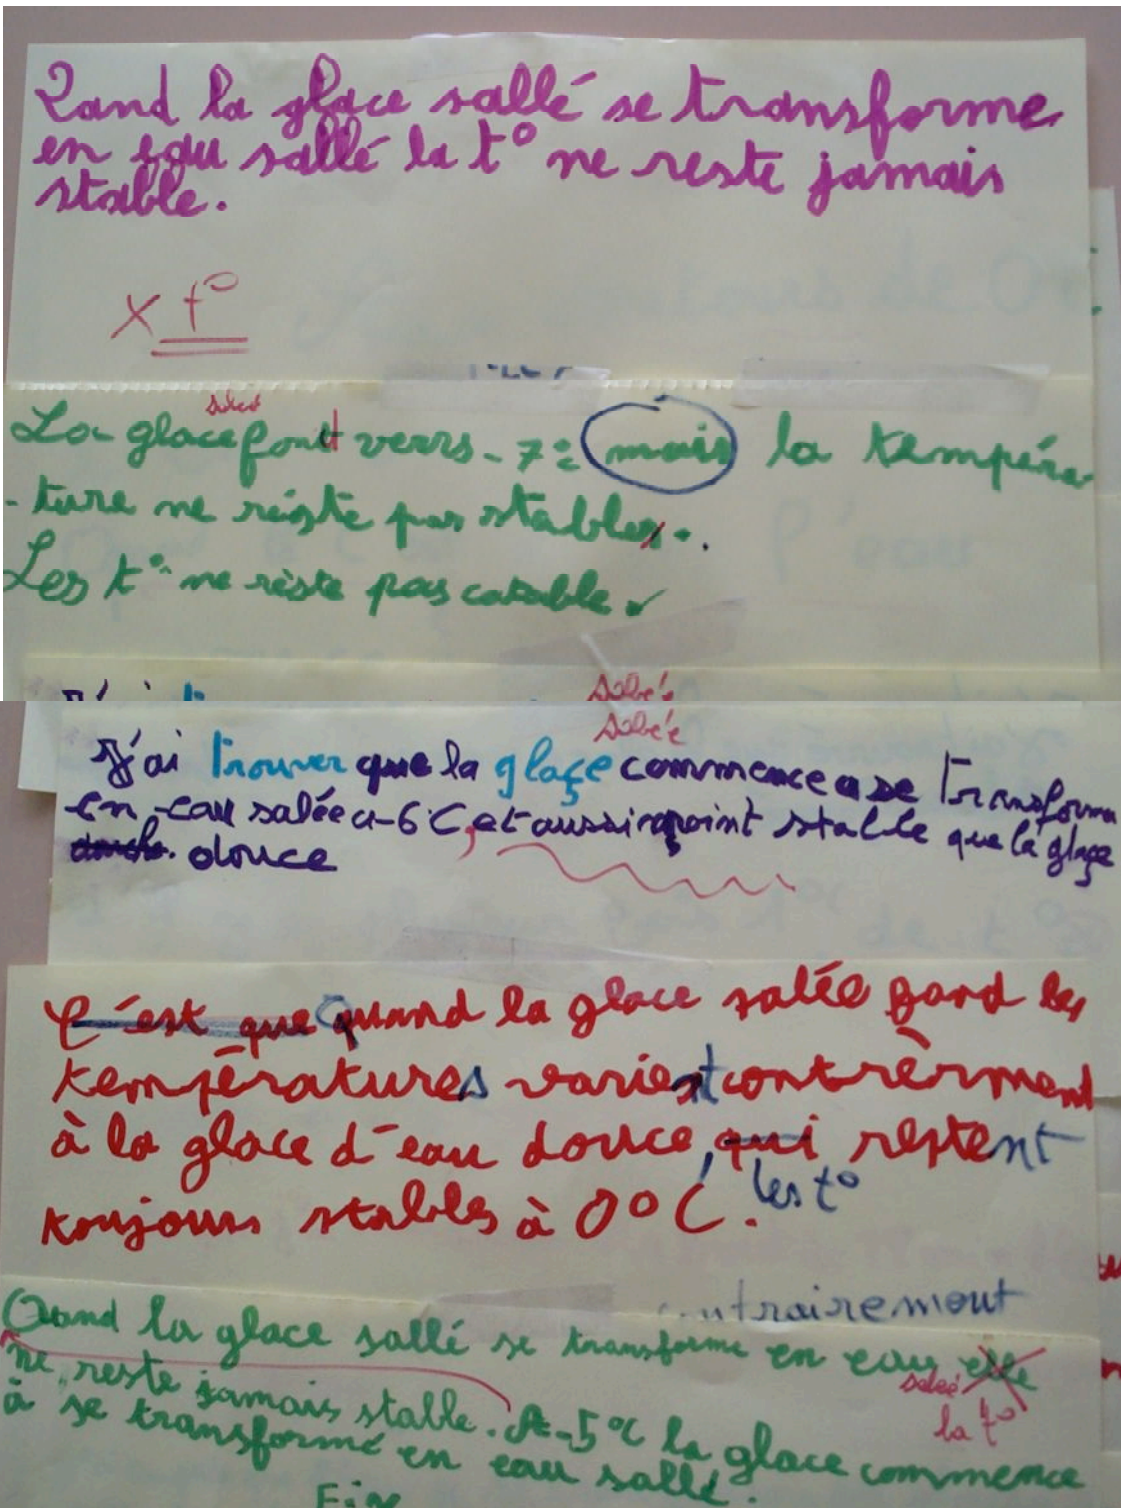 Quand la glace sallé se transforme
en eau sallé la t° ne reste jamais
stable.
x t°
salée
La glace font vers - 7 mais la tempéra
- ture ne réiste pas stables.
Les t° ne rèste pas catable
salée
salée
J'ai trouver que la glaçe commence a se transforme
en eau salée a -6°C, et aussi point stable que la glaçe
douce
C'est que Quand la glace salée fond les
températures varient contrèrment
à la glace d'eau douce, qui restent
les t°
toujours stables à 0°C.
contrairement
Quand la glace sallé se transforme en eau elle
salée
ne reste jamais stable. A -5°C la glace commence
la t°
à se transformé en eau sallé.
Fin